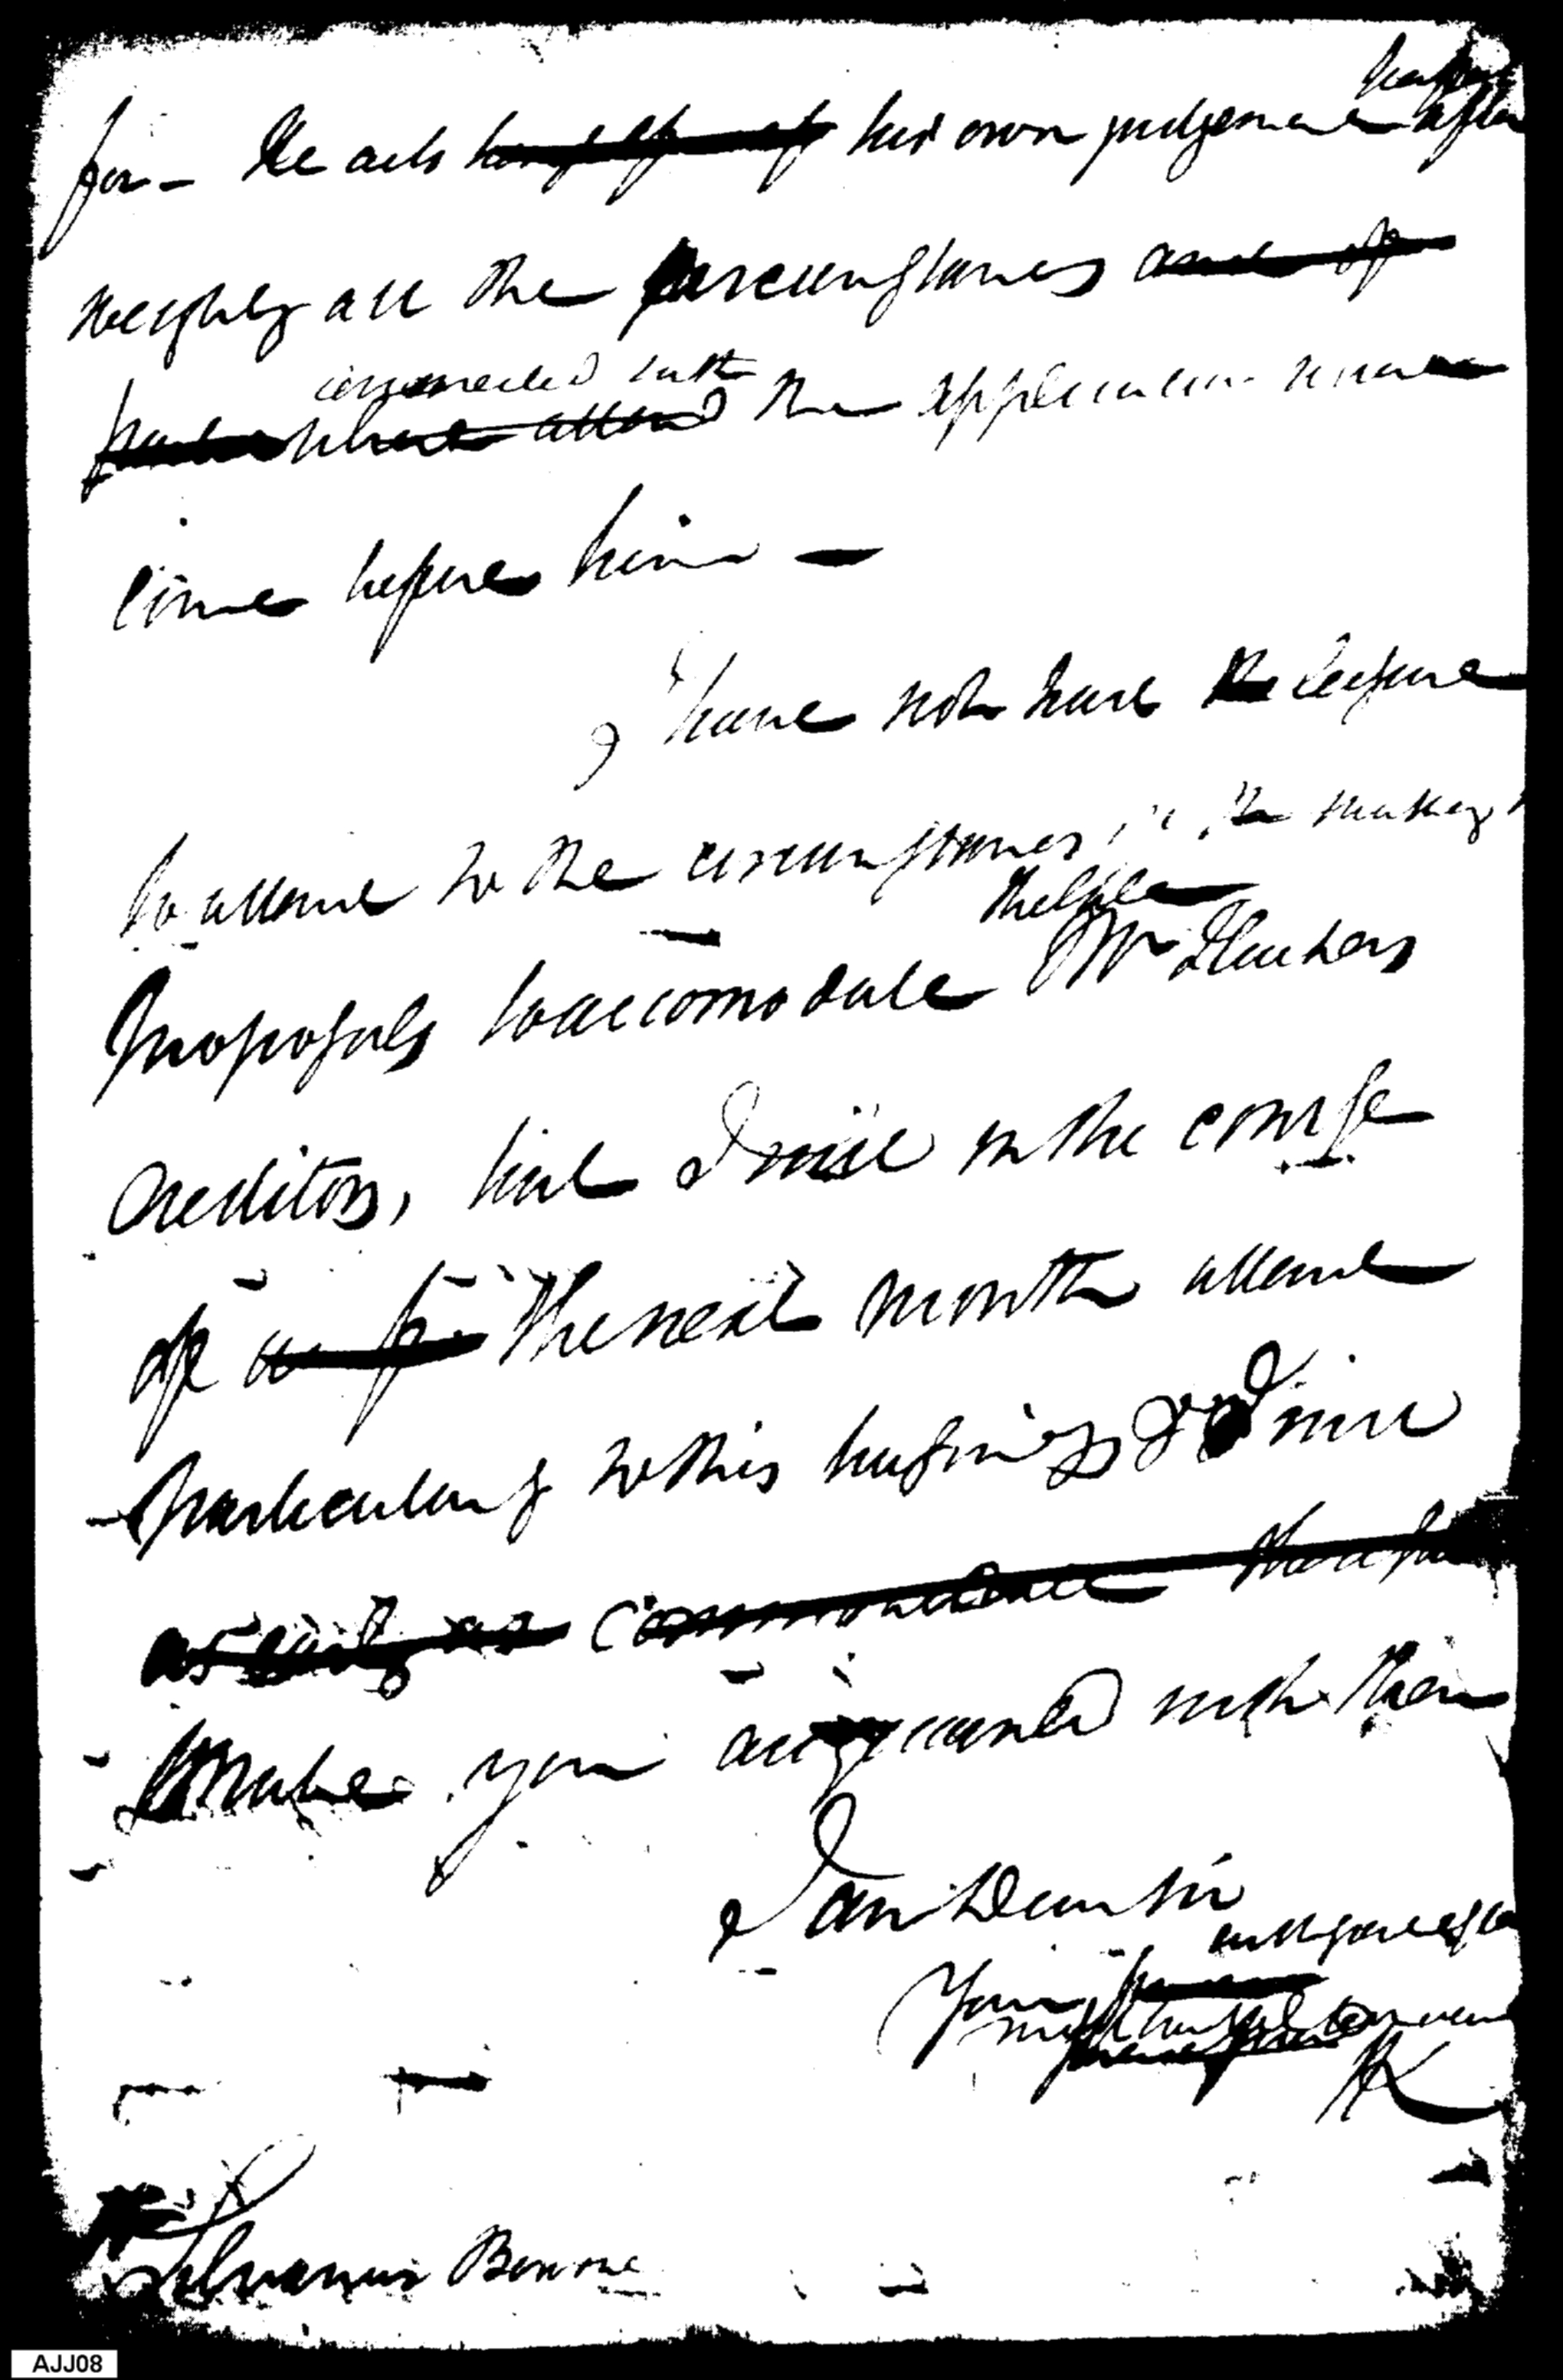 for – He acts himself of his own judgement after
weighing all the circumstances and of
connected with
what attend the application
come before him –
I have not had the leisure
to attend to the circumstances in the making
the late
proposals to accomodate Mr Fluckers
Creditors, but I will in the course
of the next month attend
particularly to this business and will
as early as
make you acquainted with them
I am Dear Sir
with great esteem
Your
most humble servant
HK
Silvanus Bourne
AJJ08